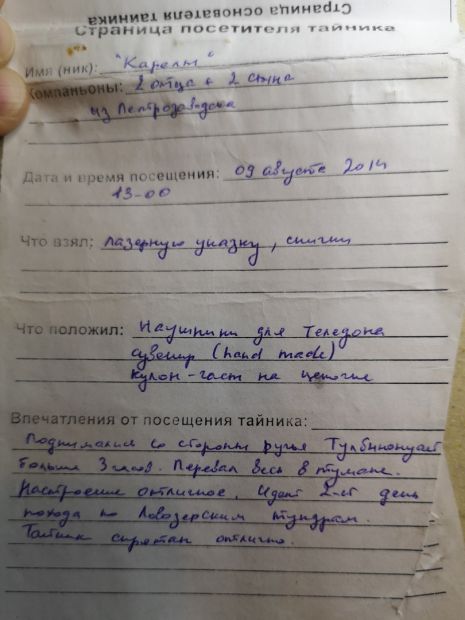 Страница основателя тайника
Страница посетителя тайника
Имя (ник): "Карелы"
Компаньоны: 2 отца + 2 сына
из Петрозаводска
Дата и время посещения: 09 августа 2014
13-00
Что взял: лазерную указку, спички
Что положил: Наушники для телефона
сувенир (hand made)
кулон-часы на цепочке
Впечатления от посещения тайника:
Поднимались со стороны ручья
больше 3 часов. Перевал весь в тумане.
Настроение отличное. Идет 2-ой день
похода по Ловозерским тундрам.
Тайник спрятан отлично.